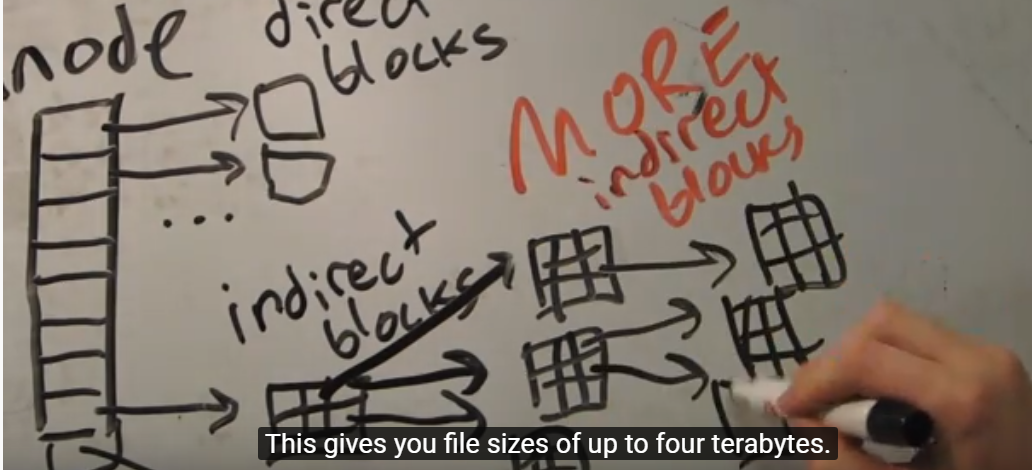 inode
direct
blocks
MORE
indirect
blocks
...
indirect
blocks
This gives you file sizes of up to four terabytes.